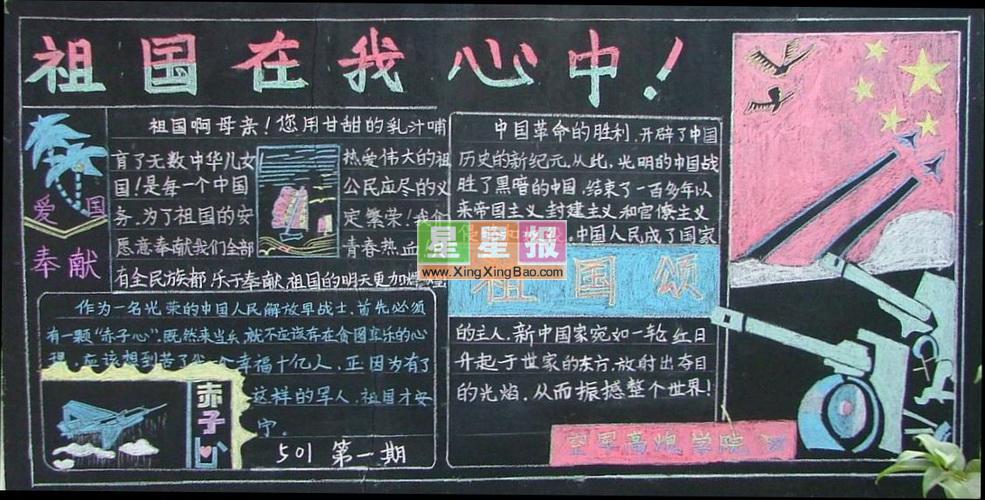 祖国在我心中！
祖国啊母亲！您用甘甜的乳汁哺
育了无数中华儿女
热爱伟大的祖
国！是每一个中国
公民应尽的义
务、为了祖国的安
定繁荣！我们
愿意奉献我们全部
青春热血
有全民族都乐于奉献祖国的明天更加
爱国
奉献
作为一名光荣的中国人民解放早战士、首先必须
有一颗“赤子心”。既然来当兵就不应该存在贪图享乐的心
理、应该想到苦了我一个幸福十亿人、正因为有了
这样的军人、祖国才安
宁。
赤子心
501 第一期
中国革命的胜利、开辟了中国
历史的新纪元、从此、光明的中国战
胜了黑暗的中国、结束了一百多年以
来帝国主义、封建主义和官僚主义
中国人民成了国家
祖国颂
的主人、新中国家宛如一轮红日
升起于世家的东方、放射出夺目
的光焰、从而振撼整个世界！
空军高炮学院
星星报
www.XingXingBao.com